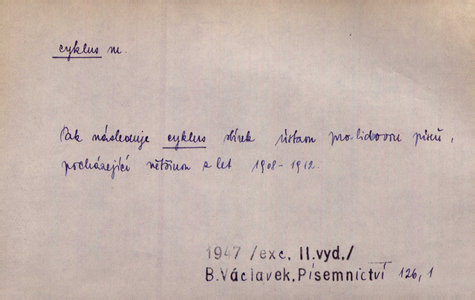 cyklus m.
Pak následuje cyklus sbírek Ústavu pro lidovou píseň,
pocházející většinou z let 1908-1912.
1947 /exc, II.vyd,/
B.Václavek,Písemnictví 126,1